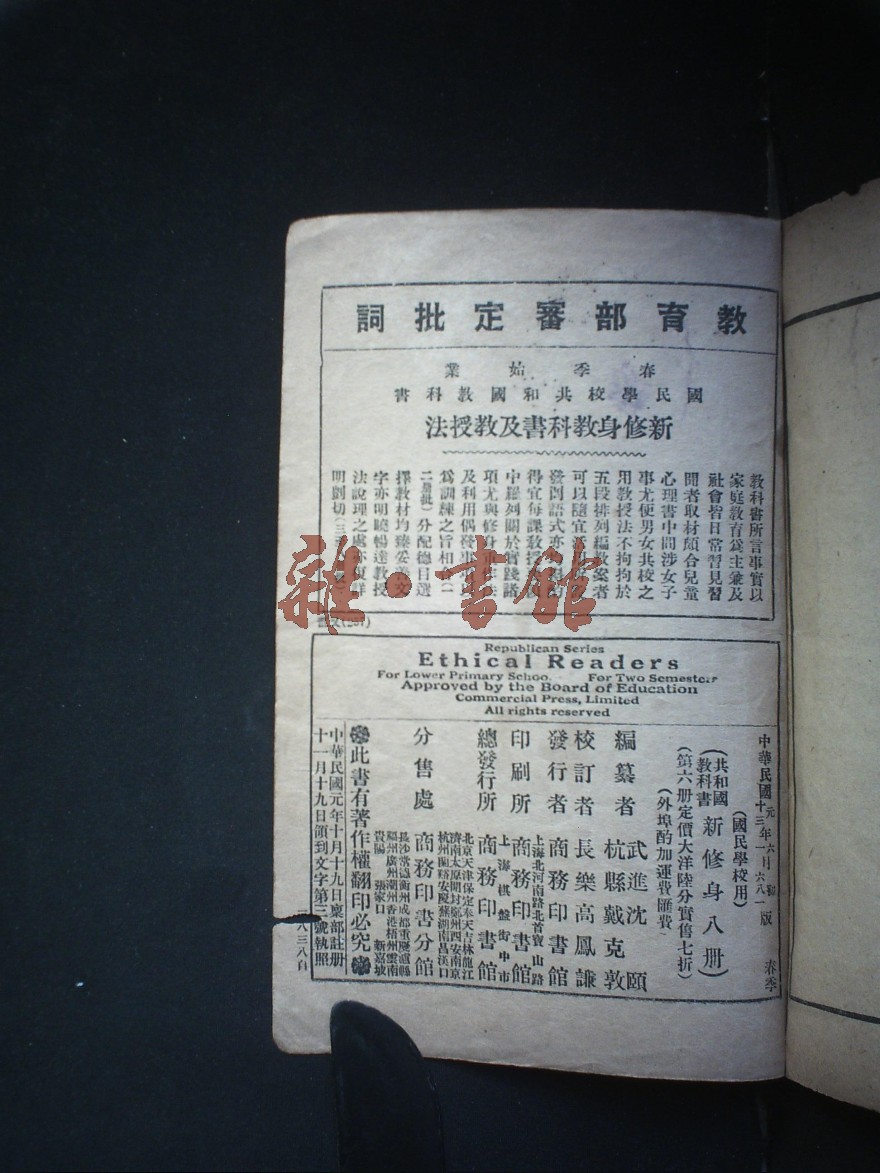 教育部審定批詞
春季始業
國民學校共和國教科書
新修身教科書及教授法
教科書所言事實以
家庭教育爲主兼及
社會皆日常習見習
聞者取材頗合兒童
心理書中間涉女子
事尤便男女共校之
用教授法不拘拘於
五段排列編教案者
可以隨宜
發問語式亦
得宜每課教授後
中羅列關於實踐諸
項尤與修身
及利用偶發事
爲訓練之旨相
二册批)分配德目選
擇教材均臻妥善文
字亦明曉暢達教授
法說理之處亦更詳
明剴切(三
雜·書館
Republican Series
Ethical Readers
For Lower Primary School For Two Semester
Approved by the Board of Education
Commercial Press, Limited
All rights reserved
中華民國元年六月初版
十三年一六八一版
春季
(國民學校用)
(共和國教科書 新修身八册)
(第六册定價大洋陸分實售七折)
(外埠酌加運費匯費)
編纂者 武進沈頤 杭縣戴克敦
校訂者 長樂高鳳謙
發行者 商務印書館
印刷所 上海北河南路北首寶山路 商務印書館
總發行所 上海棋盤街中市 商務印書館
分售處 商務印書分館
北京天津保定奉天吉林龍江
濟南太原開封鄭州西安南京
杭州蘭谿安慶蕪湖南昌漢口
長沙常德衡州成都重慶瀘縣
福州廣州潮州香港梧州雲南
貴陽 張家口 新嘉坡
此書有著作權翻印必究
中華民國元年十月十九日稟部註册
十一月十九日領到文字第三號執照